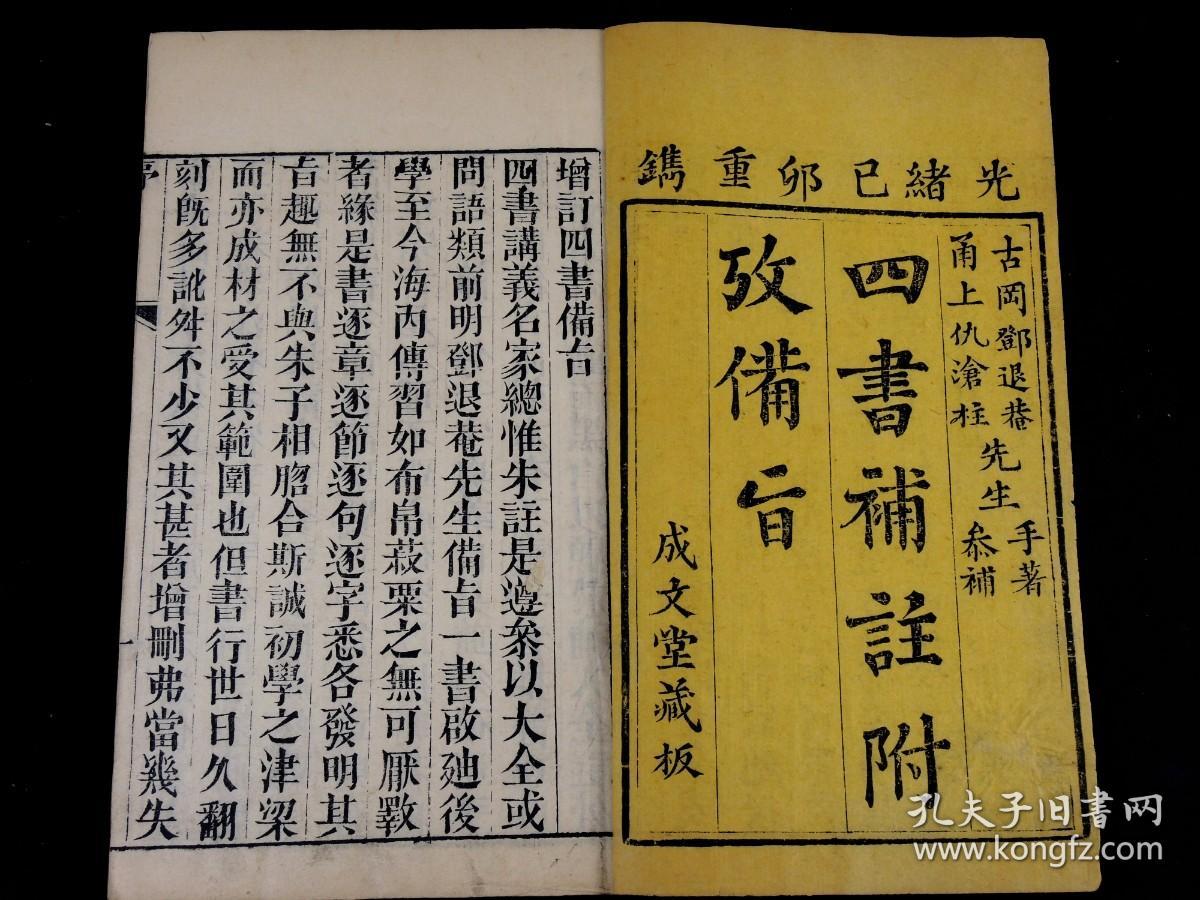 光緒己卯重鐫
古岡鄧退菴先生手著
甬上仇滄柱先生叅補
四書補註附
攷備旨
成文堂藏板
增訂四書備旨
四書講義名家總惟朱註是遵叅以大全或
問語類前明鄧退菴先生備旨一書啟廸後
學至今海內傳習如布帛菽粟之無可厭斁
者緣是書逐章逐節逐句逐字悉各發明其
旨趣無不與朱子相脗合斯誠初學之津梁
而亦成材之受其範圍也但書行世日久翻
刻旣多訛舛不少又其甚者增刪弗當幾失
序
一
孔夫子旧书网
www.kongfz.com